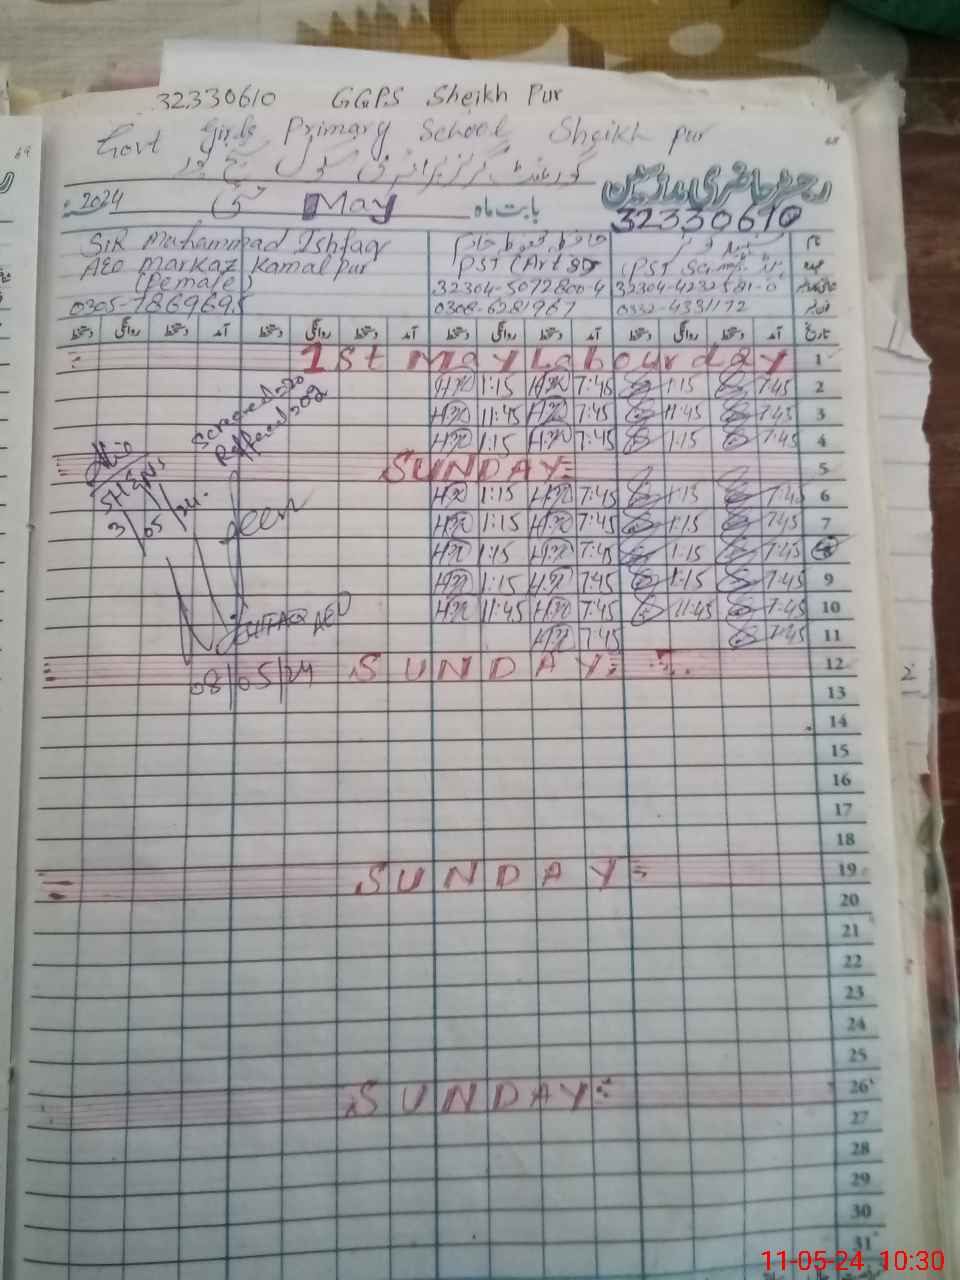 32330610 GGPS Sheikh Pur
69
Govt Girls Primary School Sheikh pur
68
گورنمنٹ گرلز پرائمری سکول شیخ پور
رجسٹر حاضری ملازمین
2024 مئی May بابت ماہ
32330610
Sir Muhammad Ishfaq
AEO Markaz Kamal pur
(Female)
0305-7869695
PST (Arts)
32304-5072800-4
0308-6281967
PST Science
32304-4232581-0
0332-4331172
نام
عہدہ
دستخط روانگی دستخط آمد دستخط روانگی دستخط آمد دستخط روانگی دستخط آمد دستخط روانگی دستخط آمد تاریخ
1st May Labour day 1
1:15 7:45 1:15 7:45 2
11:45 7:45 11:45 7:45 3
1:15 7:45 1:15 7:45 4
SUNDAY 5
1:15 7:45 1:15 7:45 6
1:15 7:45 1:15 7:45 7
1:15 7:45 1:15 7:45 8
1:15 7:45 1:15 7:45 9
11:45 7:45 11:45 7:45 10
7:45 7:45 11
SUNDAY 12
Screened=20
Reffered=02
3/05/24
Seen
ISHFAQ AEO
08/05/24
13
14
15
16
17
18
SUNDAY 19
20
21
22
23
24
25
SUNDAY 26
27
28
29
30
31
2
11-05-24 10:30